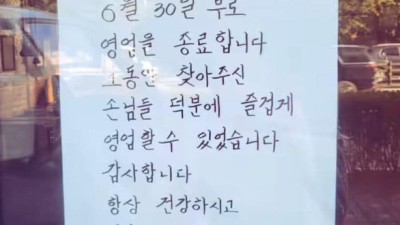 6월 30일 부로
영업을 종료합니다
그동안 찾아주신
손님들 덕분에 즐겁게
영업할 수 있었습니다
감사합니다
항상 건강하시고